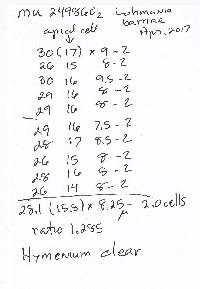 MU 249986C2 Lishmania
apical cell barriae
Apr. 2017
30 (17) × 9 - 2
26 15 8 - 2
30 16 9.5 - 2
29 16 8 - 2
29 16 8 - 2
29 16 7.5 - 2
28 17 8.5 - 2
26 15 8 - 2
28 16 8 - 2
26 14 8 - 2
28.1 (15.8) × 8.25 - 2.0 cells
µ
ratio 1.285
Hymenium clear